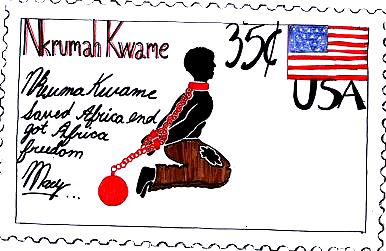 Nkrumah Kwame
35¢
USA
Nkruma Kwame
Saved Africa end
got Africa
freedom
May...